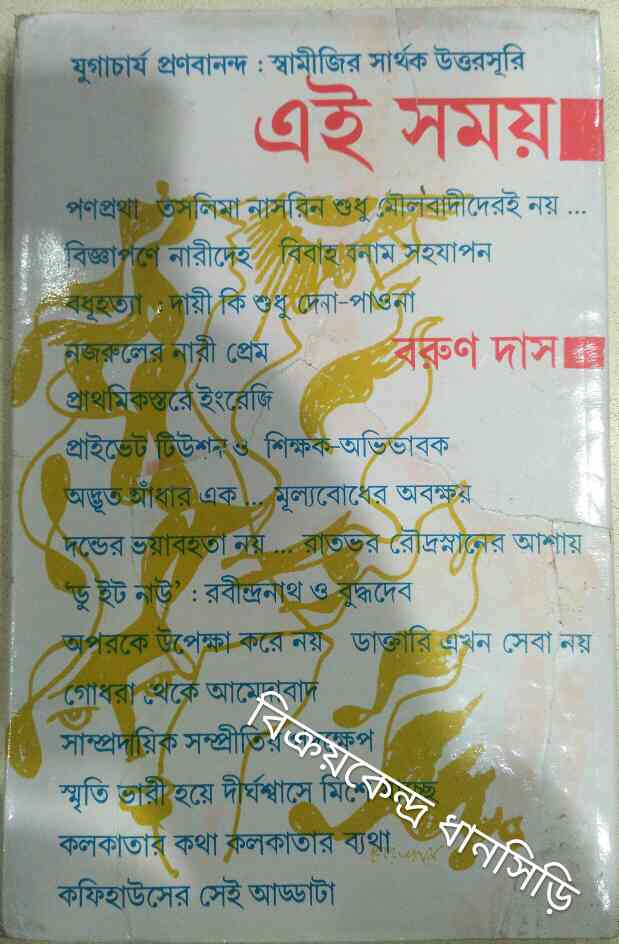 যুগাচার্য প্রণবানন্দ : স্বামীজির সার্থক উত্তরসূরি
এই সময়
পণপ্রথা তসলিমা নাসরিন শুধু মৌলবাদীদেরই নয় ...
বিজ্ঞাপণে নারীদেহ বিবাহ বনাম সহযাপন
বধূহত্যা : দায়ী কি শুধু দেনা-পাওনা
নজরুলের নারী প্রেম
বরুণ দাস
প্রাথমিকস্তরে ইংরেজি
প্রাইভেট টিউশন ও শিক্ষক-অভিভাবক
অদ্ভূত আঁধার এক ... মূল্যবোধের অবক্ষয়
দন্ডের ভয়াবহতা নয় ... রাতভর রৌদ্রস্নানের আশায়
'ডু ইট নাউ' : রবীন্দ্রনাথ ও বুদ্ধদেব
অপরকে উপেক্ষা করে নয় ডাক্তারি এখন সেবা নয়
গোধরা থেকে আমেদাবাদ
সাম্প্রদায়িক সম্প্রীতির
স্মৃতি ভারী হয়ে দীর্ঘশ্বাসে মিশে
কলকাতার কথা কলকাতার ব্যথা
কফিহাউসের সেই আড্ডাটা
বিক্রয়কেন্দ্র ধানসিড়ি